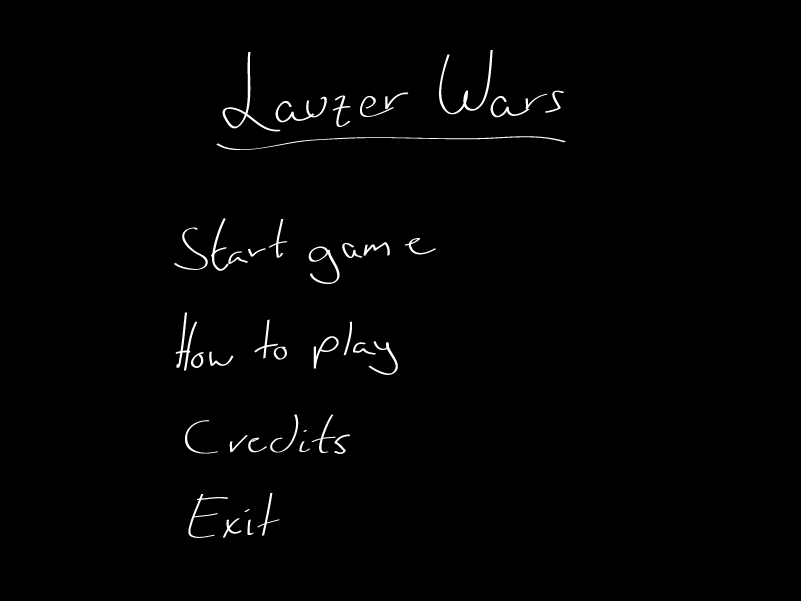 Lavzer Wars
Start game
How to play
Credits
Exit